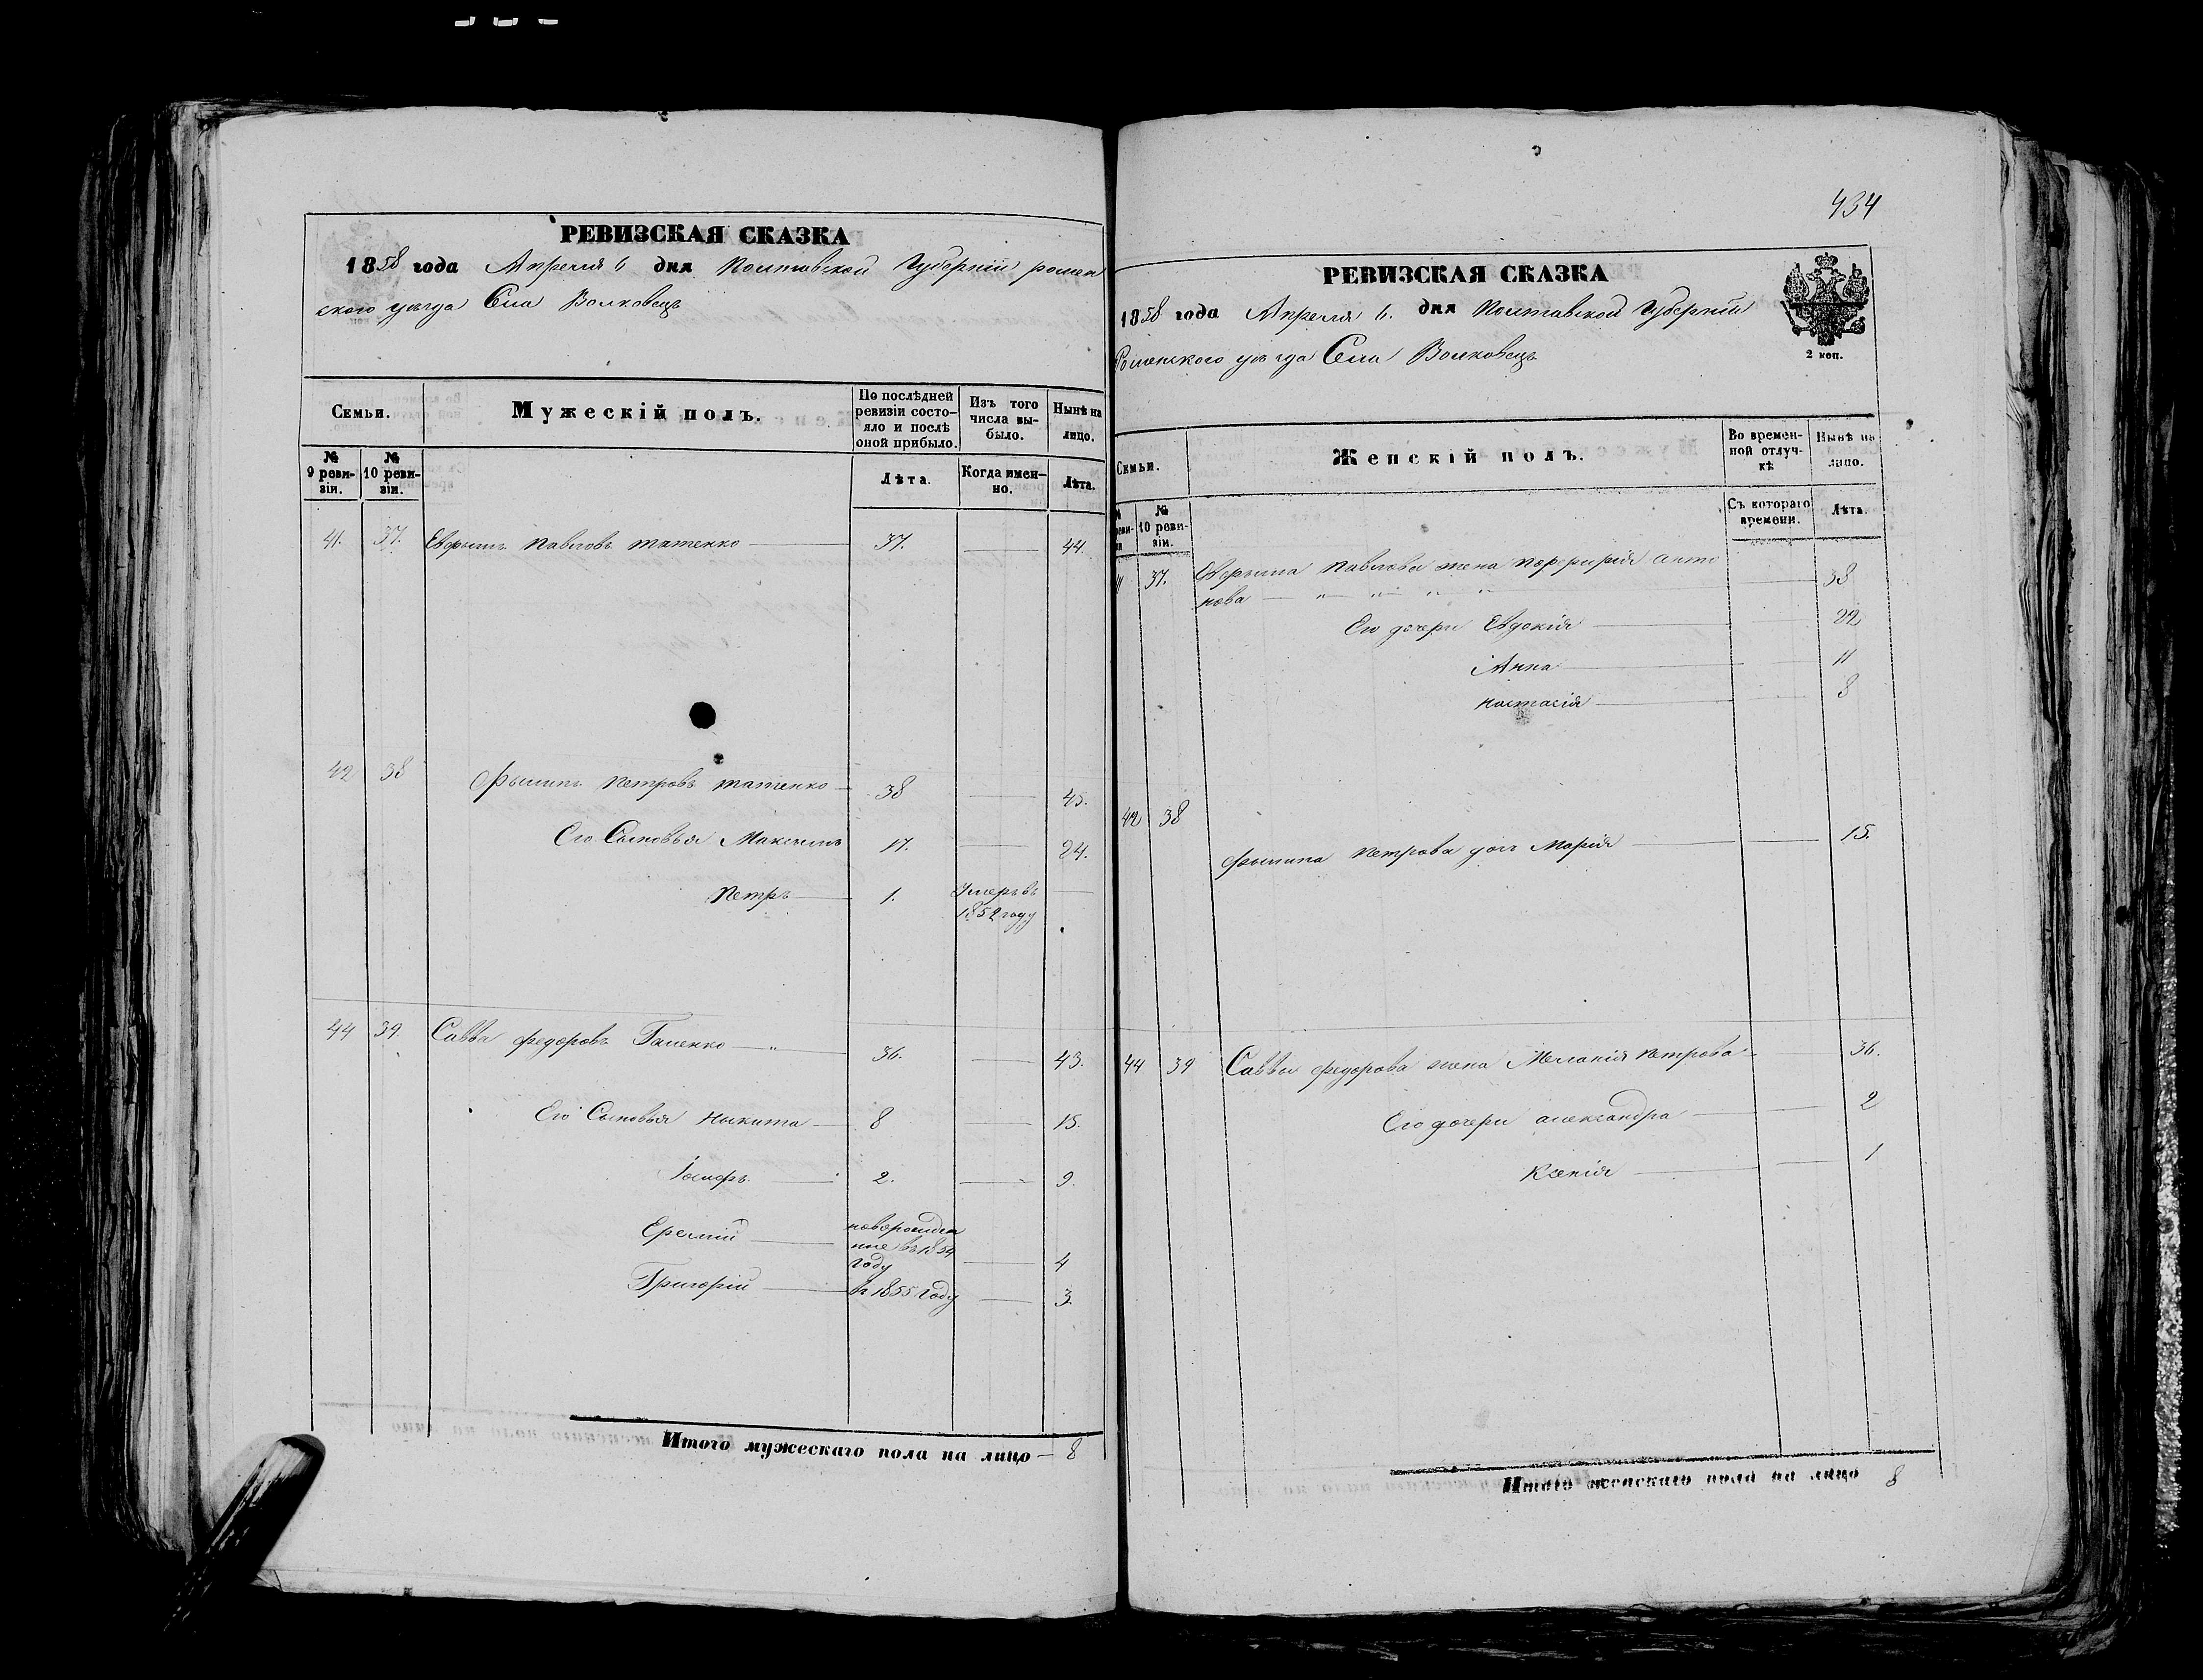 РЕВИЗСКАЯ СКАЗКА
1858 года Апреля 6 дня Полтавской Губерніи ромен
ского уезда Села Волковецъ
Семьи.
Мужескій полъ.
По послѣдней ревизіи состо-
яло и послѣ оной прибыло.
Изъ того числа вы-
было.
Нынѣ на лицо.
№ 9 реви-
зіи.
№ 10 реви-
зіи.
Лѣта.
Когда имен-
но.
Лѣта.
41. 37. Евфимъ Павловъ татенко 37. 44.
42 38 Филипъ Петровъ татенко 38 45.
Его Сыновья Максимъ 17. 24.
Петръ 1. Умеръ въ
1852 году
44 39 Савва федоровъ Галенко 36. 43.
Его Сыновья Никита 8 15.
Іосифъ 2. 9.
Еремій новорожден
ные въ 1854
году 4
Григорій въ 1855 году 3.
Итого мужескаго пола на лицо 8
434
РЕВИЗСКАЯ СКАЗКА
1858 года Апреля 6. дня Полтавской Губерніи
2 коп.
Роменского уезда Села Волковецъ
Семьи.
Женскій полъ.
Во времен-
ной отлуч-
кѣ
Нынѣ на лицо.
№ 10 реви-
зіи.
Съ котораго времени.
Лѣта.
37. Павлова жена Порфирія Анто
нова 38
Его дочери Евдокія 22
Анна 11
Настасія 8
42 38
Филипа Петрова доч Марія 15.
44 39 Саввы федорова жена Меланія Петрова 36.
Его дочери александра 2
Ксенія 1
Итого женскаго пола на лицо 8